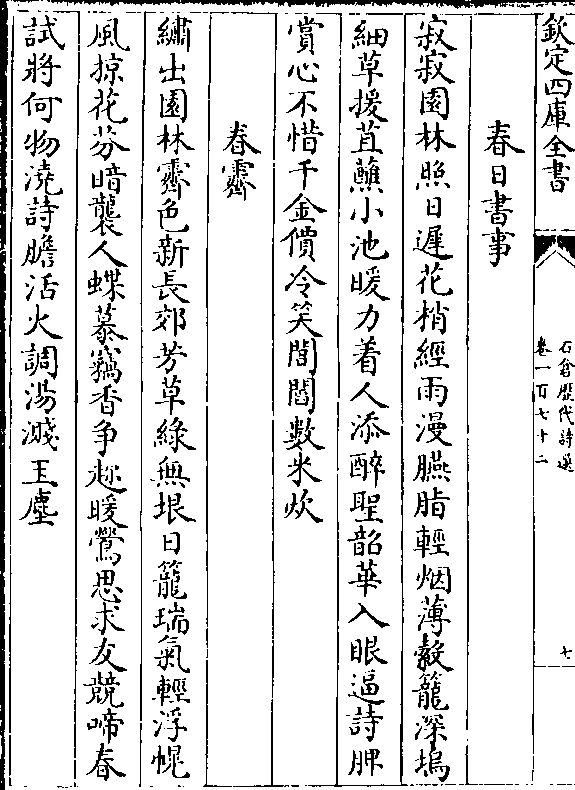 欽定四庫全書
石倉歷代詩選
卷一百七十二
七
春日書事
寂寂園林照日遲花梢經雨漫臙脂輕烟薄縠籠深塢
細草援苴蘸小池暖力着人添醉聖韶華入眼逼詩脾
賞心不惜千金價冷笑閭閻數米炊
春霽
繡出園林霽色新長郊芳草綠無垠日籠瑞氣輕浮幌
風掠花芬暗襲人蝶慕竊香争趂暖鶯思求友競啼春
試將何物澆詩膽活火調湯濺玉塵